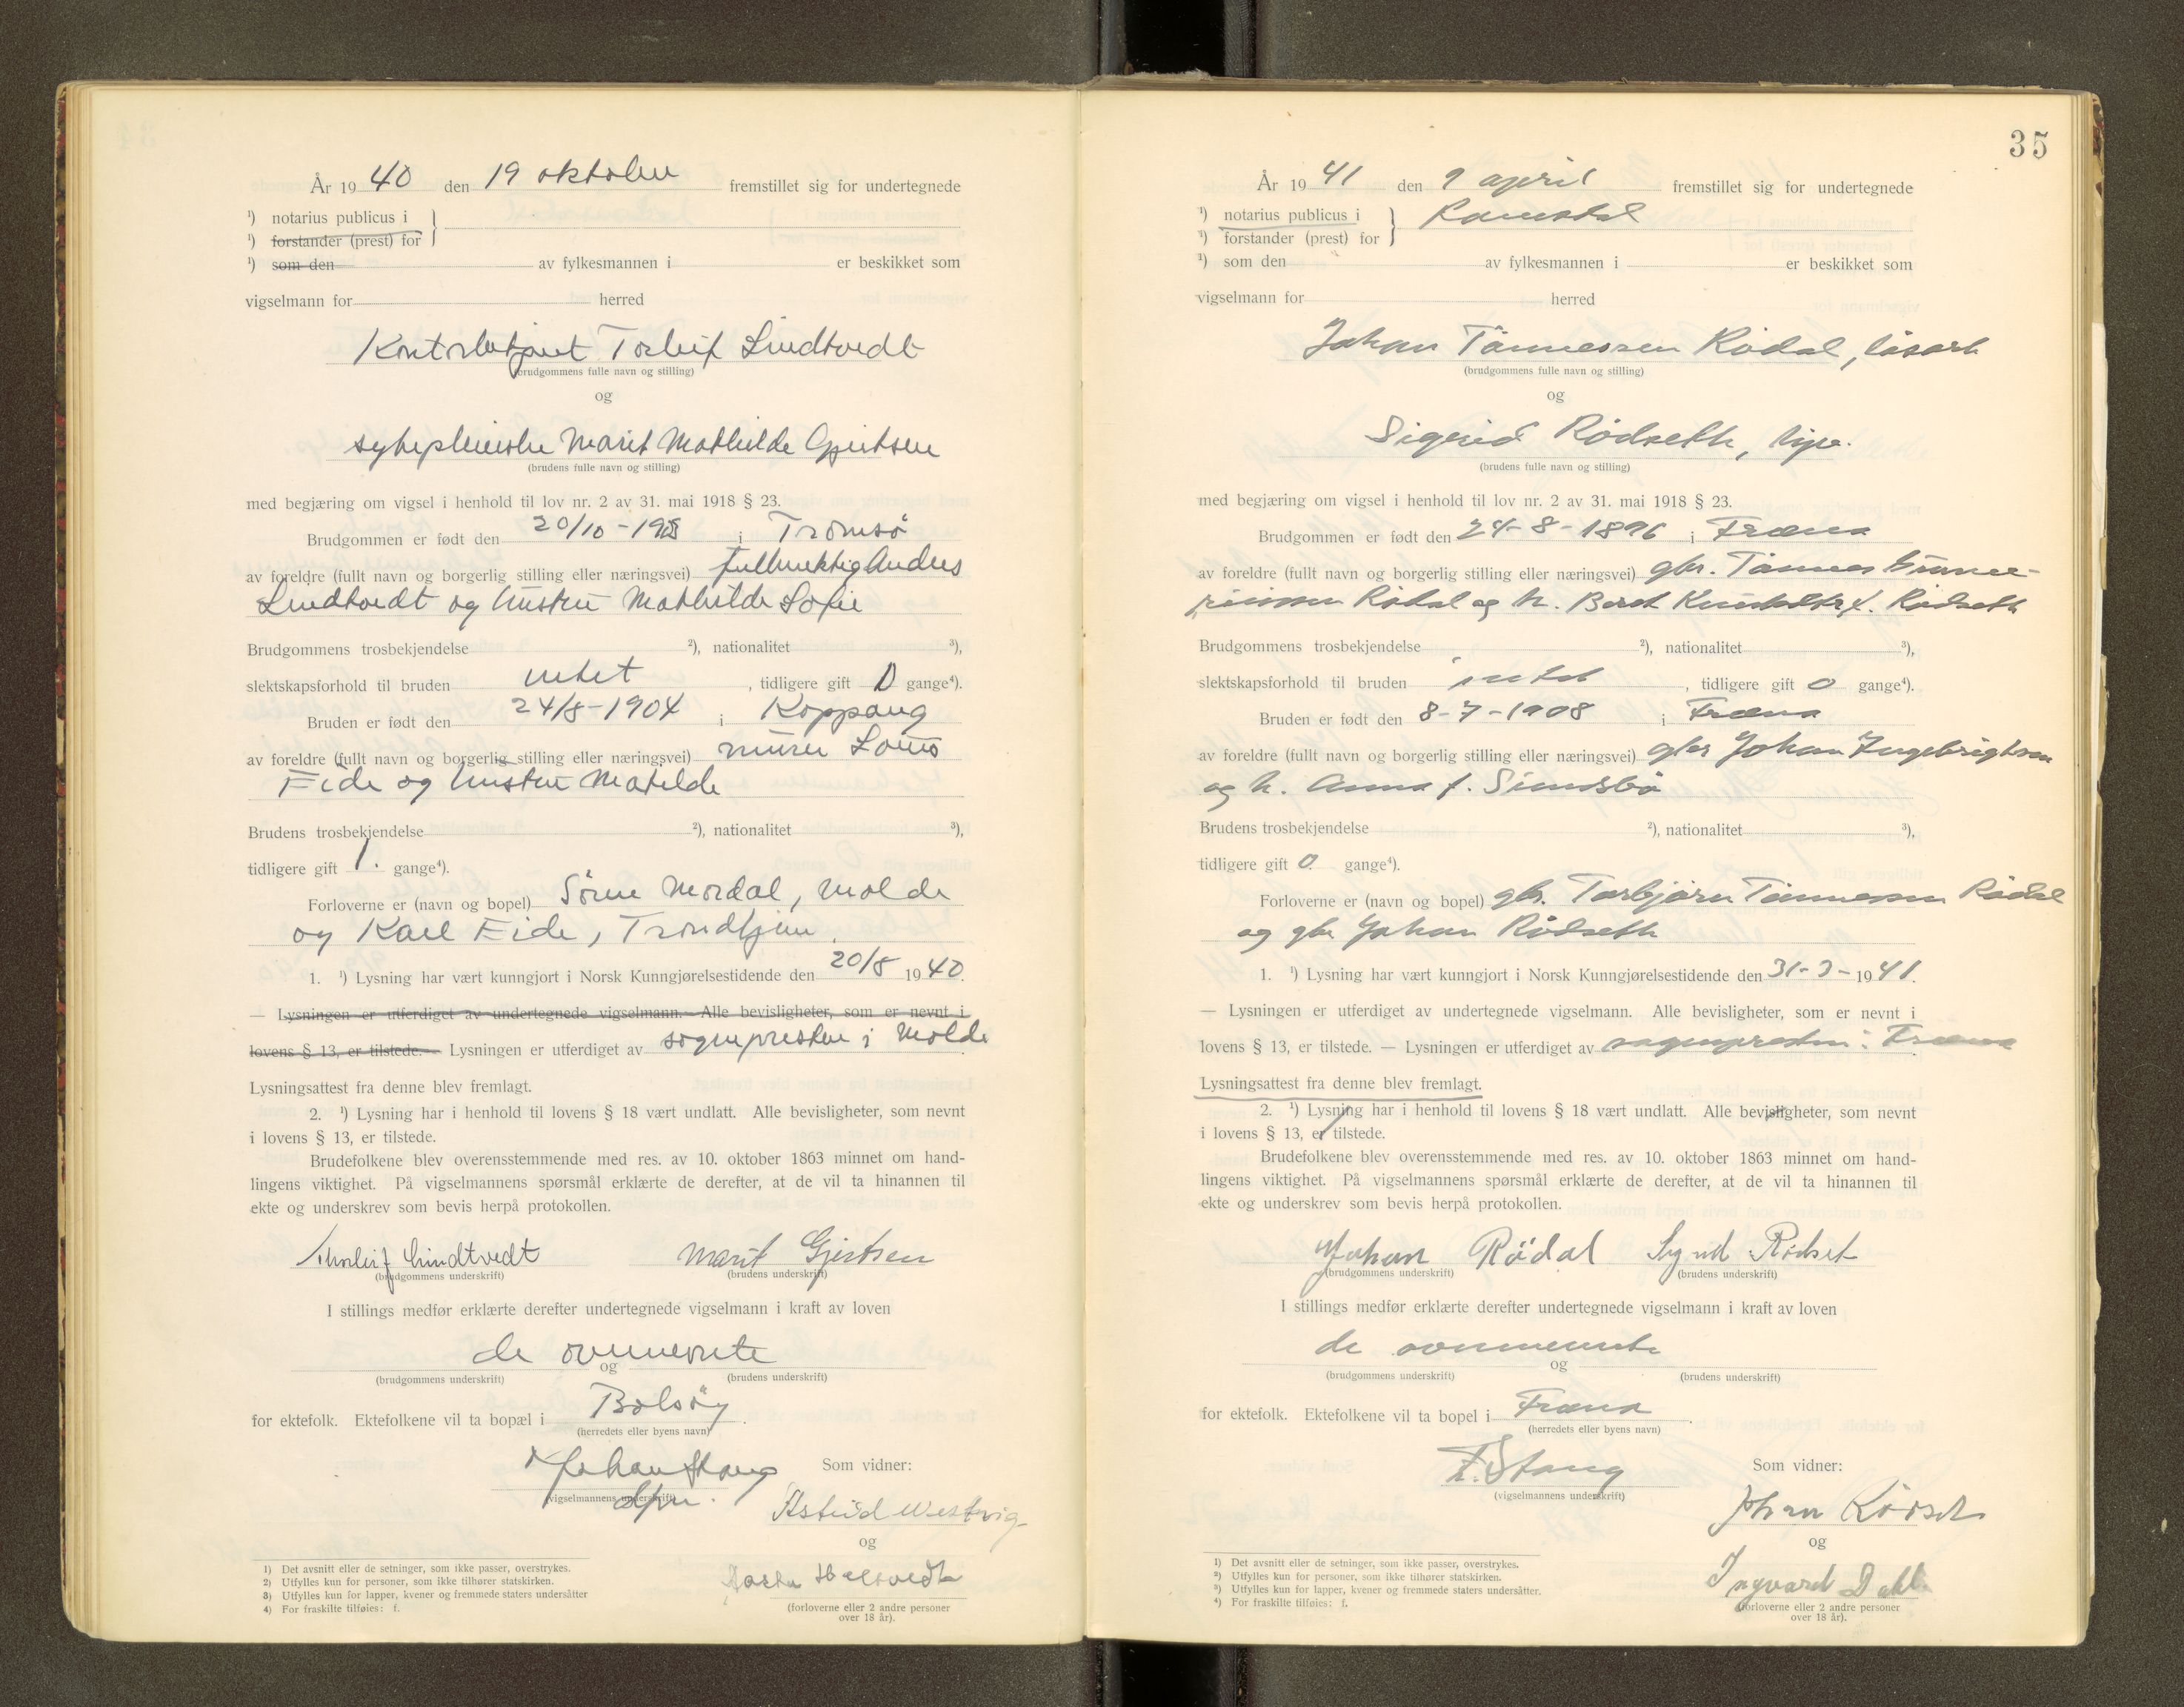 År 1940 den 19 oktober fremstillet sig for undertegnede
¹) notarius publicus i
¹) forstander (prest) for
¹) som den av fylkesmannen i er beskikket som
vigselmann for herred
Kontorbetjent Torleif Lindtvedt
(brudgommens fulle navn og stilling)
og
sykepleierske Marit Mathilde Gjertsen
(brudens fulle navn og stilling)
med begjæring om vigsel i henhold til lov nr. 2 av 31. mai 1918 § 23.
Brudgommen er født den 20/10 - i Tromsö
av foreldre (fullt navn og borgerlig stilling eller næringsvei) fullmektig Anders
Lindtvedt og hustru Mathilde Sofie
Brudgommens trosbekjendelse ²), nationalitet ³),
slektskapsforhold til bruden intet , tidligere gift 0 gange⁴).
Bruden er født den 24/8-1904 i Koppang
av foreldre (fullt navn og borgerlig stilling eller næringsvei) murer Louis
Eide og hustru Matilde
Brudens trosbekjendelse ²), nationalitet ³),
tidligere gift 1. gange⁴).
Forloverne er (navn og bopel) Sörne Mordal, Molde
og Karl Eide, Trondhjem.
1. ¹) Lysning har vært kunngjort i Norsk Kunngjørelsestidende den 20/8 1940.
— Lysningen er utferdiget av undertegnede vigselmann. Alle bevisligheter, som er nevnt i
lovens § 13, er tilstede. — Lysningen er utferdiget av sognepresten i Molde
Lysningsattest fra denne blev fremlagt.
2. ¹) Lysning har i henhold til lovens § 18 vært undlatt. Alle bevisligheter, som nevnt
i lovens § 13, er tilstede.
Brudefolkene blev overensstemmende med res. av 10. oktober 1863 minnet om hand-
lingens viktighet. På vigselmannens spørsmål erklærte de derefter, at de vil ta hinannen til
ekte og underskrev som bevis herpå protokollen.
Thorleif Lindtvedt Marit Gjertsen
(brudgommens underskrift) (brudens underskrift)
I stillings medfør erklærte derefter undertegnede vigselmann i kraft av loven
de ovennevnte
og
(brudgommens underskrift) (brudens underskrift)
for ektefolk. Ektefolkene vil ta bopæl i Bolsöy.
(herredets eller byens navn)
Johan Stang Som vidner:
(vigselmannens underskrift)
Astrid Westvig
og
(forloverne eller 2 andre personer
over 18 år).
1) Det avsnitt eller de setninger, som ikke passer, overstrykes.
2) Utfylles kun for personer, som ikke tilhører statskirken.
3) Utfylles kun for lapper, kvener og fremmede staters undersåtter
4) For fraskilte tilføies: f.
35
År 1941 den 9 april fremstillet sig for undertegnede
¹) notarius publicus i Romsdal
¹) forstander (prest) for
¹) som den av fylkesmannen i er beskikket som
vigselmann for herred
Johan Tönnessen Rödal, lösarb
(brudgommens fulle navn og stilling)
og
Sigrid Rödseth, hjp.
(brudens fulle navn og stilling)
med begjæring om vigsel i henhold til lov nr. 2 av 31. mai 1918 § 23.
Brudgommen er født den 24-8-1896 i Fræna
av foreldre (fullt navn og borgerlig stilling eller næringsvei) gbr. Tönnes
Rödal og h. Berit f. Rödseth
Brudgommens trosbekjendelse ²), nationalitet ³),
slektskapsforhold til bruden intet , tidligere gift 0 gange⁴).
Bruden er født den 8-7-1908 i Fræna
av foreldre (fullt navn og borgerlig stilling eller næringsvei) gbr Johan Ingebrigtsen
og h. Anna f. Sundsbö
Brudens trosbekjendelse ²), nationalitet ³),
tidligere gift 0 gange⁴).
Forloverne er (navn og bopel) gbr. Torbjörn Tönnessen Rödal
og gbr Johan Rödseth
1. ¹) Lysning har vært kunngjort i Norsk Kunngjørelsestidende den 31-3-1941.
— Lysningen er utferdiget av undertegnede vigselmann. Alle bevisligheter, som er nevnt i
lovens § 13, er tilstede. — Lysningen er utferdiget av sognepresten i Fræna
Lysningsattest fra denne blev fremlagt.
2. ¹) Lysning har i henhold til lovens § 18 vært undlatt. Alle bevisligheter, som nevnt
i lovens § 13, er tilstede.
Brudefolkene blev overensstemmende med res. av 10. oktober 1863 minnet om hand-
lingens viktighet. På vigselmannens spørsmål erklærte de derefter, at de vil ta hinannen til
ekte og underskrev som bevis herpå protokollen.
Johan Rödal Sigrid Rödset
(brudgommens underskrift) (brudens underskrift)
I stillings medfør erklærte derefter undertegnede vigselmann i kraft av loven
de ovennevnte
og
(brudgommens underskrift) (brudens underskrift)
for ektefolk. Ektefolkene vil ta bopel i Fræna.
(herredets eller byens navn)
F. Stang Som vidner:
(vigselmannens underskrift)
Johan Rödset
og
Ingvard Dahl
(forloverne eller 2 andre personer
over 18 år).
1) Det avsnitt eller de setninger, som ikke passer, overstrykes.
2) Utfylles kun for personer, som ikke tilhører statskirken.
3) Utfylles kun for lapper, kvener og fremmede staters undersåtter.
4) For fraskilte tilføies: f.